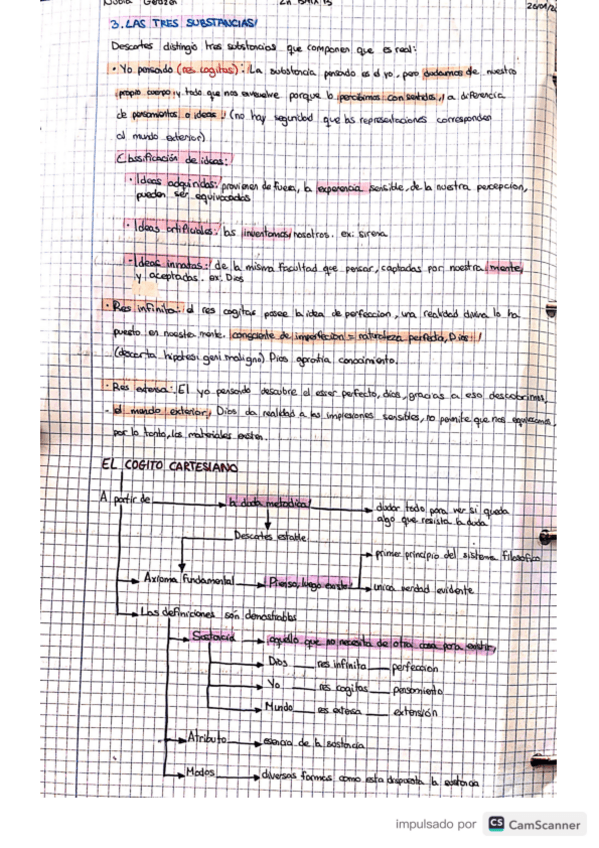 Nubia
26/01/2
3. LAS TRES SUBSTANCIAS/
Descartes distingió tres substancias que componen que es real:
· Yo pensando (res cogitas): La substancia pensado es el yo, pero dudamos de nuestro
propio cuerpo, y todo que nos envuelve porque lo percibimos con sentidos, / a diferencia
de pensamientos o ideas / (no hay seguridad que las representaciones correspondan
al mundo exterior)
Classificación de ideas:
· Ideas adquiridas: provienen de fuera, la experencia sensible, de la nuestra percepcion,
pueden ser equivocadas
· Ideas artificiales: las inventamos nosotros. ex: sirena
· Ideas innatas: de la misma facultad que pensar, captadas por nuestra mente,
y aceptadas. ex: Dios
· Res infinita: el res cogitas posee la idea de perfeccion, una realidad divina lo ha
puesto en nuestra mente. consciente de imperfecion = naturaleza perfecta, Dios. /
(descarta hipotesi geni maligno) Dios conocimiento.
· Res extensa: El yo pensando descubre el esser perfecto, dios, gracias a eso descobrimos,
- el mundo exterior, Dios da realidad a las impresiones sensibles, no permite que nos
por lo tanto, los materiales existen.
EL COGITO CARTESIANO
A partir de la duda metodica dudar todo para ver si queda
algo que resista la duda
Descartes estable
primer principio del sistema filosofico
Axioma fundamental Pienso, luego existo
unica verdad evidente
Las definiciones són
Sustancia aquello que no necesita de otra cosa para existir,
Dios res infinita perfeccion
Yo res cogitas pensamiento
Mundo res extesa extensión
Atributo esencia de la sostancia
Modos diversas formas como esta la sostancia
impulsado por CS CamScanner